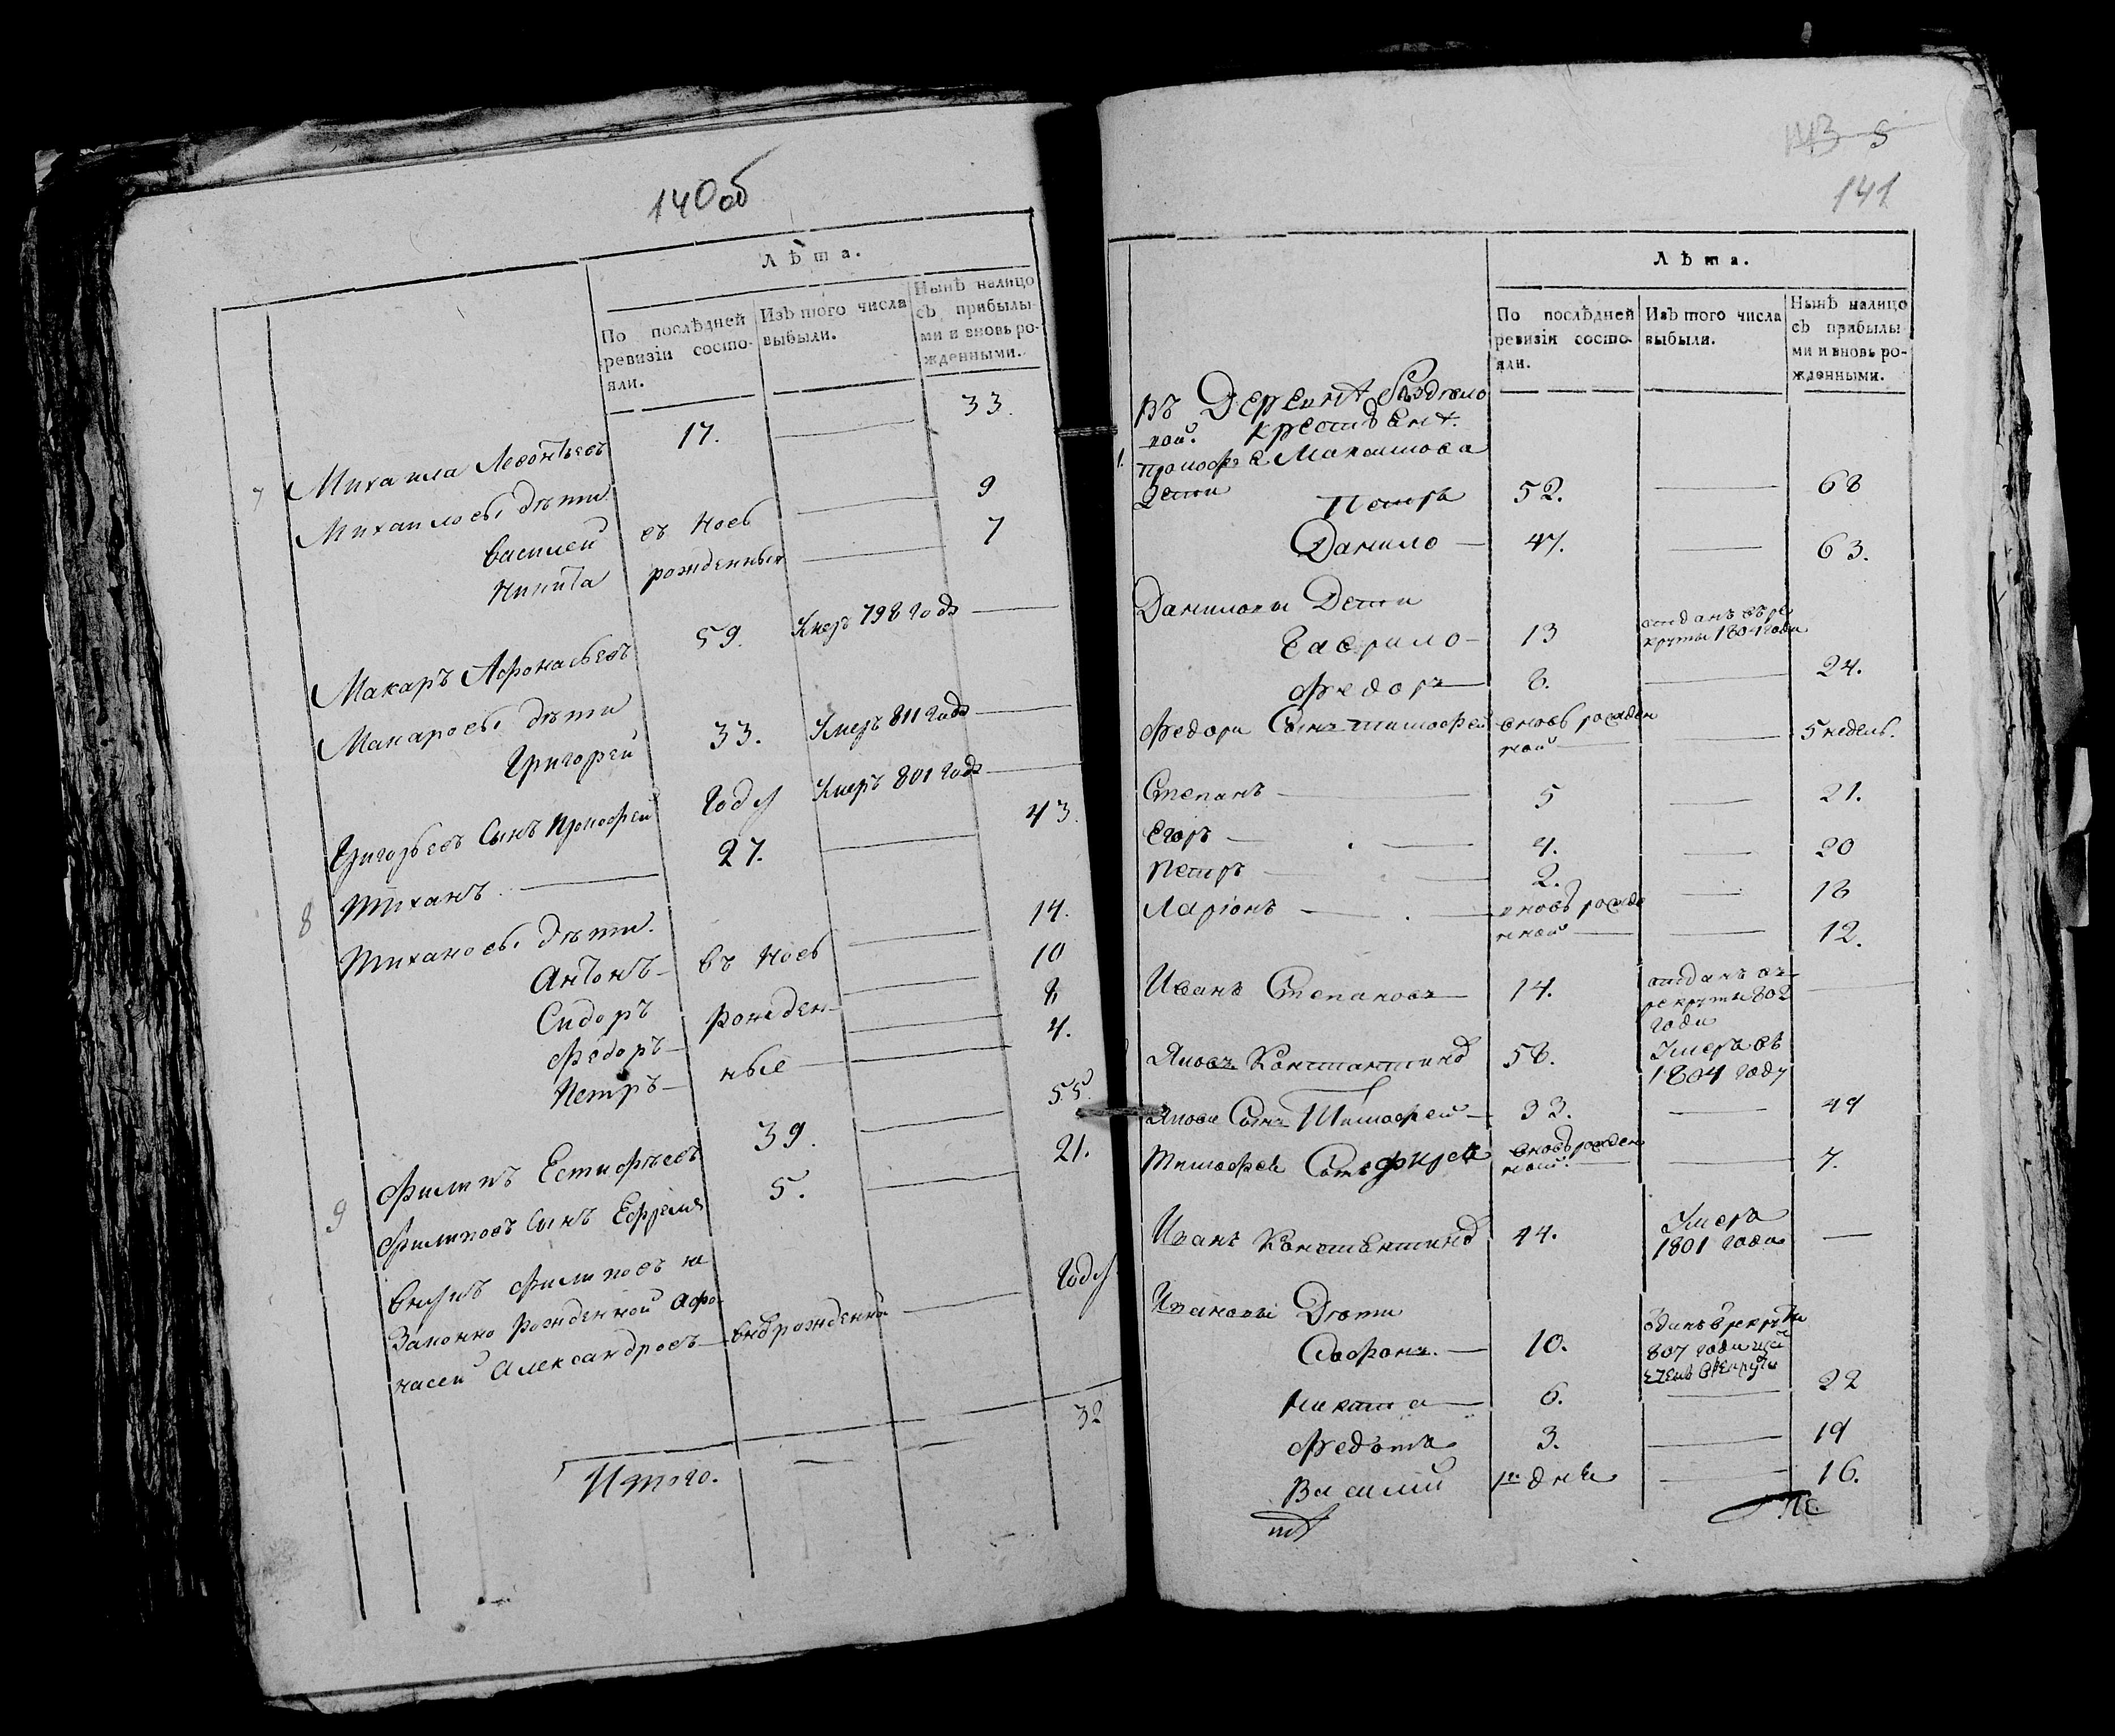 140об
Лѣта.
По послѣдней ревизіи состояли.
Изъ того числа выбыли.
Нынѣ налицо съ прибылыми и вновь рожденными.
7 Михаила Леонтьевъ 17. — 33.
Михаиловы дѣти
Василей въ новь — 9
Никита рожденныя — 7
Макаръ Афонасьевъ 59. Умеръ 798 года —
Макаровы дѣти
Григорей 33. Умеръ 811 года —
Григорьевъ сынъ Прокофей году Умеръ 801 года —
8 Тиханъ — 27. — 43.
Тихановы дѣти.
Антонъ въ новь — 14.
Сидоръ рожден — 10
Федоръ ные — 8
Петръ — 4.
9 Филипъ Естифѣевъ 39. — 55.
Филиповъ сынъ Ефремъ 5. — 21.
Внукъ Филиповъ не
законно рожденной Афо
насей Александровъ — вновърожденной — году
Итого. — — 32
5
141
Лѣта.
По послѣдней ревизіи состояли.
Изъ того числа выбыли.
Нынѣ налицо съ прибылыми и вновь рожденными.
въ Деревнѣ
крестьянѣ.
1. Максимова
Дети Петръ 52. — 68
Данило — 47. — 63.
Даниловы Дети
Гаврило — 13 отданъ въ ре
круты 1804 года
Федоръ — 8. — 24.
Федора Сынъ Тимофей вновь рожден
ной — — 5 недель.
Степанъ — 5 — 21.
Егоръ — 4. — 20
Петръ — 2. — 18
Ларіонъ — вновь рожде
нной — — 12.
Иванъ Степановъ — 14. отданъ въ
рекруты 802
года —
Яковъ Константинов 58. Умеръ въ
1804 году
Якова Сынъ Тимофей — 33. — 49
Тимофея Сынъ вновь рожден
ной. — — 7.
Иванъ Константинов 44. Умеръ
1801 года —
Ивановы Дѣти
Софронъ. — 10.
807 года
Никита — 6. — 22
Федотъ 3. — 19
Василій — 16.